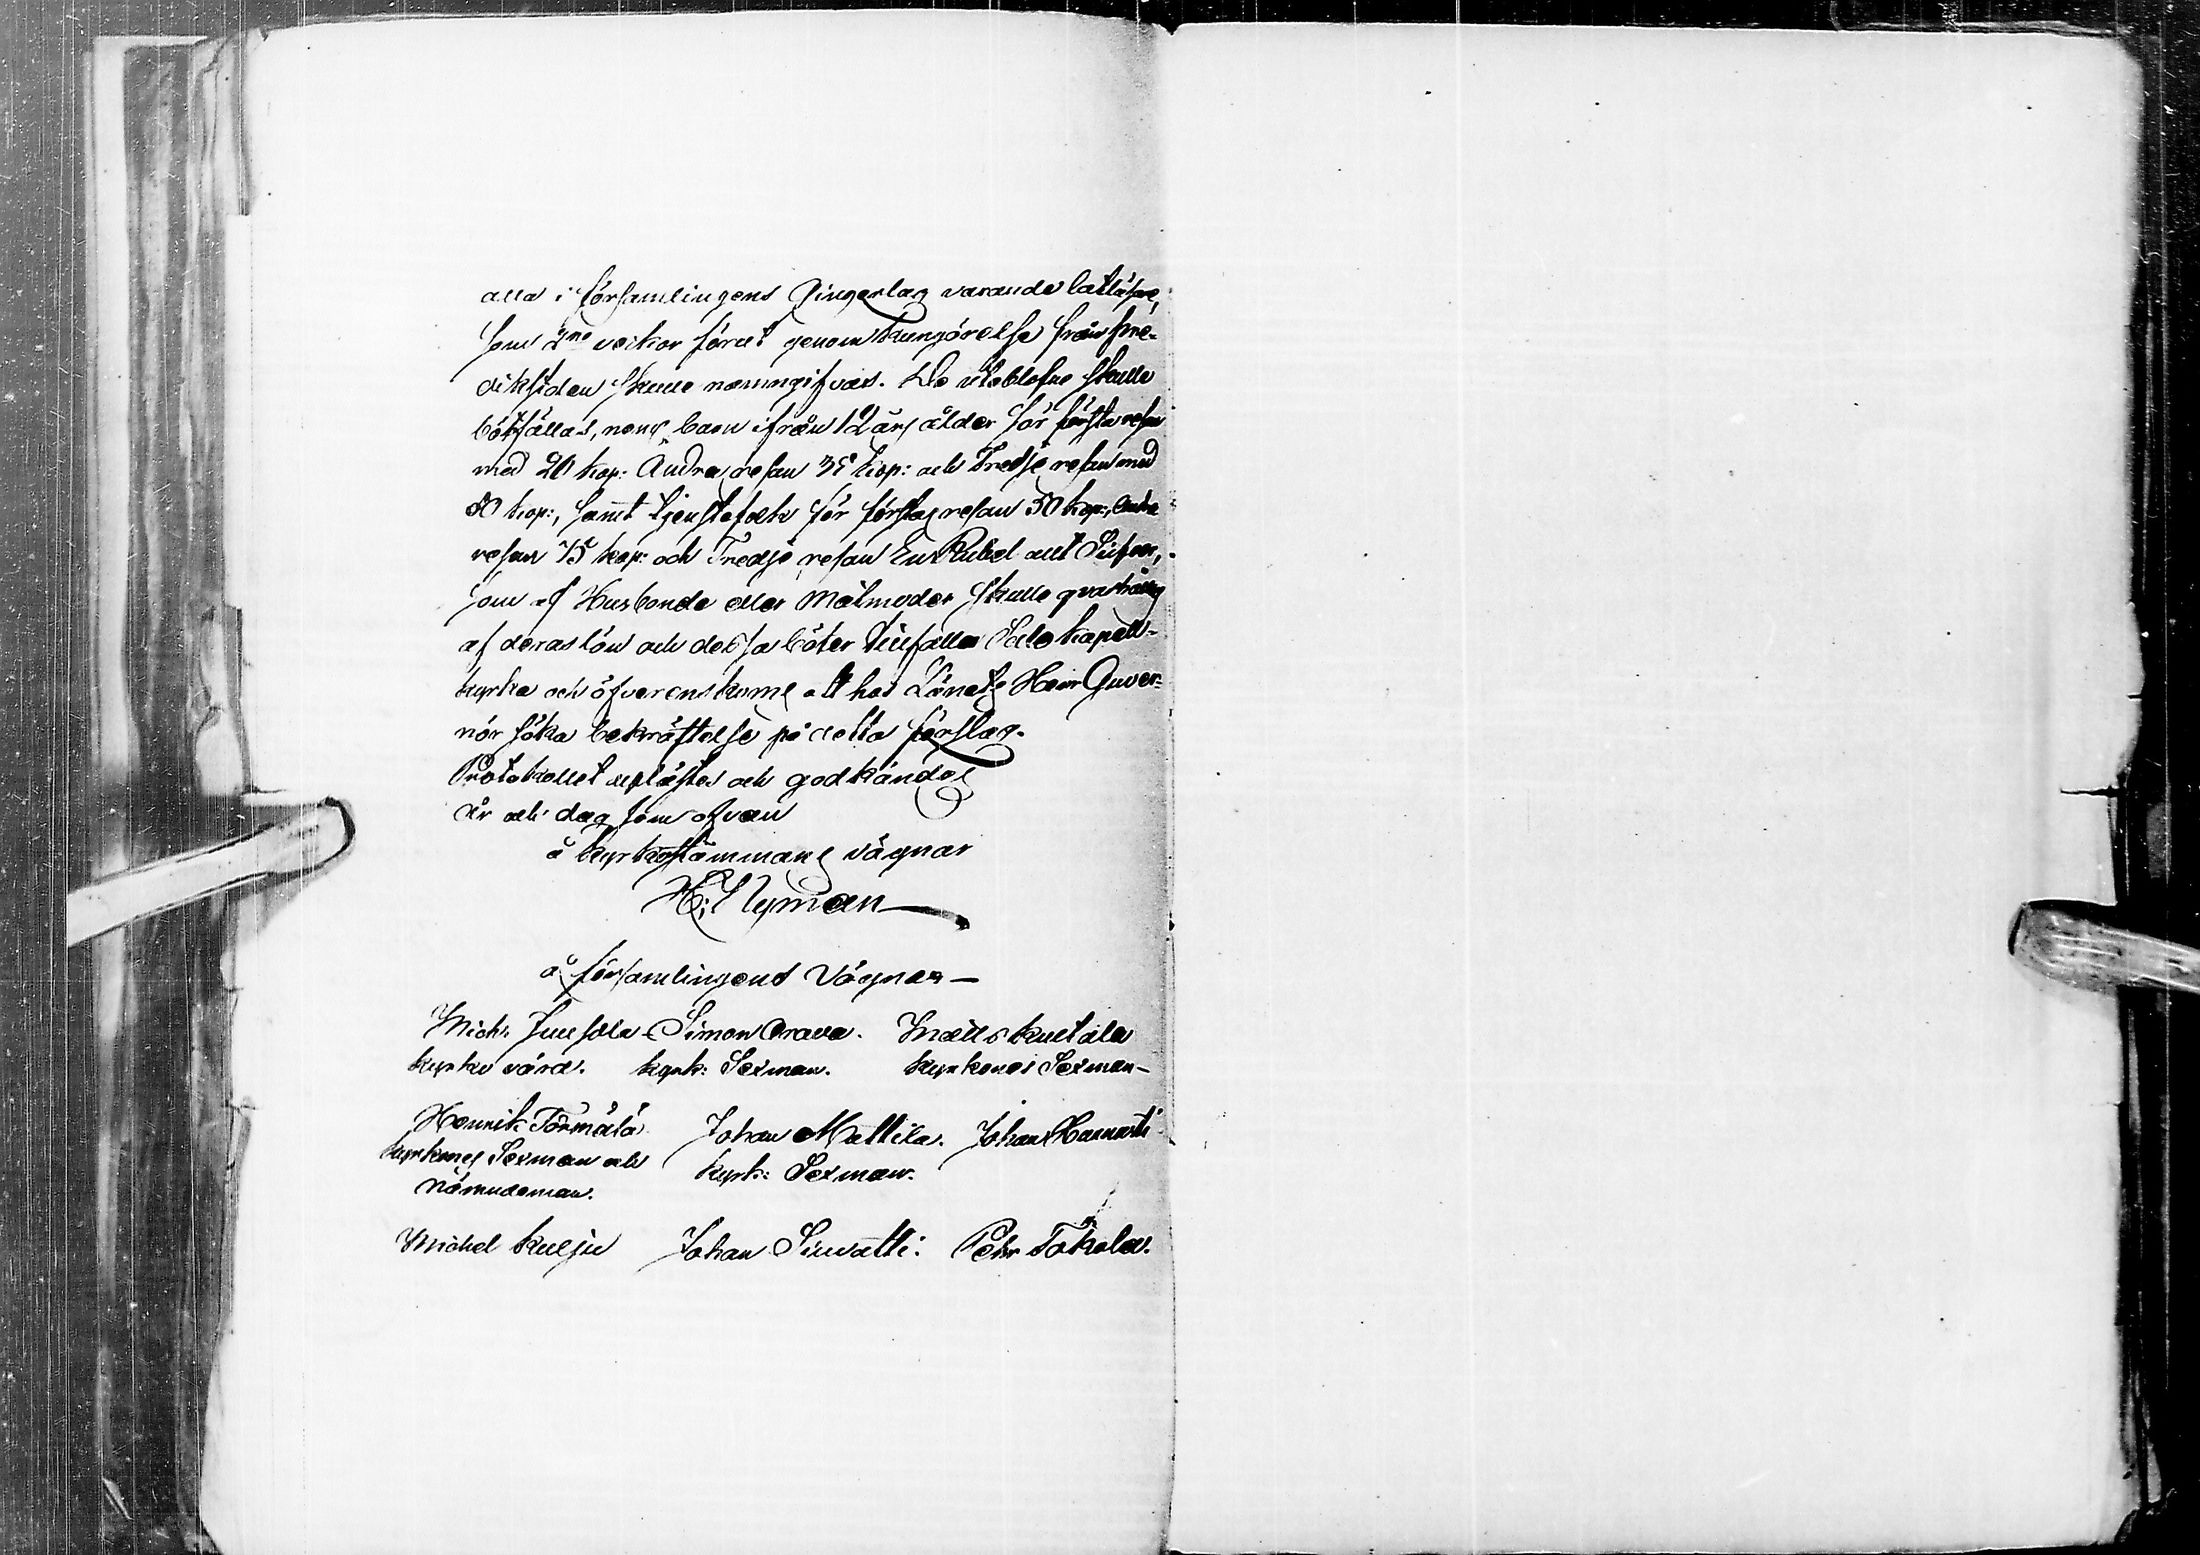 alla i församlingens Gingerlag varande latläsare,
som 2ne veckor förut genom kungörelse från pre-
dikstolen skulle namngifvas. De uteblefne skulle
bötfällas, neml. barn ifrån 12 års ålder för första resan
med 20 kop: Andra resan 35 kop: och Tredje resan med
50 kop:, samt tjenstefolk för första resan 50 kop:, Andra
resan 75 kop: och Tredje resan En Rubel allt Silfver,
som af Husbonde eller Matmoder skulle qvarhållas
af deras lön och dessa böter tillfalla Salo kapell-
kyrka och öfverenskoms att hos Länets Herr Guver-
nör söka bekräftelse på detta förslag.
Protokollet upplästes och godkändes
År och dag som ofvan
å Kyrkostämmans vägnar
H: Nyman
å församlingens Vägnar
Mich: Juusola Simon Orava. Matts Kuetala
kyrko värd. kyrk: Sexman. kyrkones Sexman
Henrik Törmälä Johan Mattila. Johan Hannuti
kyrkones Sexman och kyrk: Sexman.
Nämndeman.
Michel Kulju Johan Siwatti. Pehr Tökola.